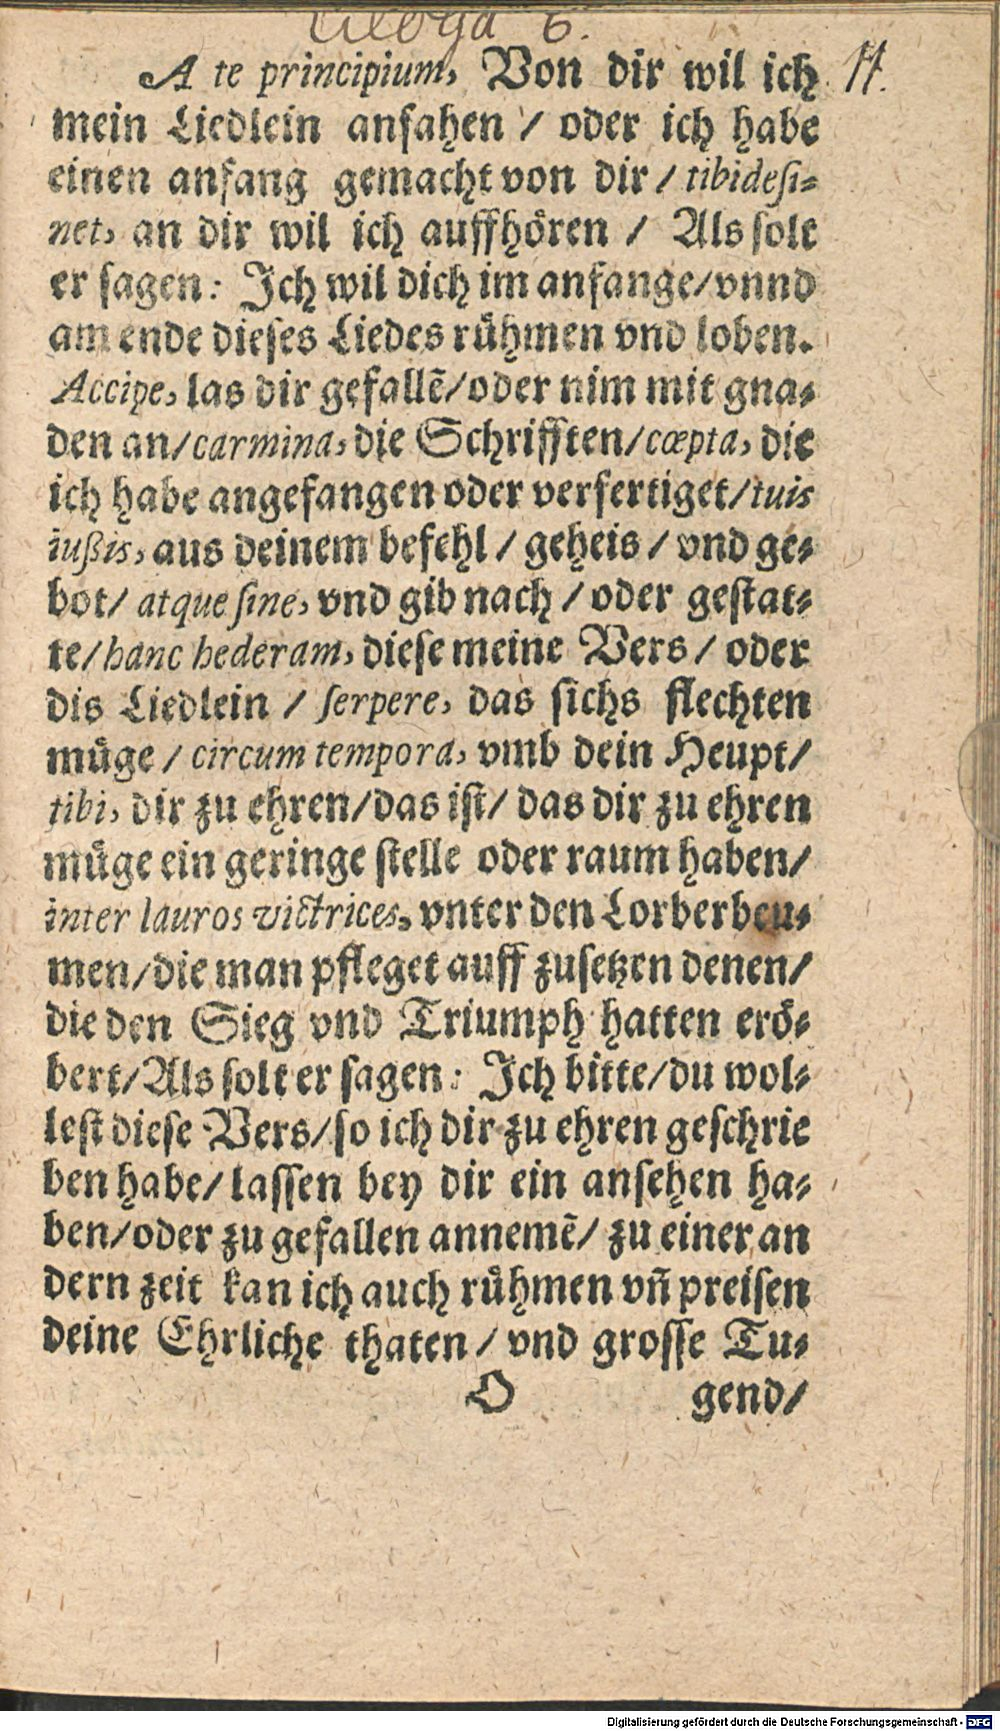 Ecloga 8.
A te principium, Von dir wil ich 11.
mein Liedlein anfahen / oder ich habe
einen anfang gemacht von dir / tibi desi⸗
net, an dir wil ich auffhören / Als solt
er sagen: Jch wil dich im anfange/vnnd
am ende dieses Liedes rühmen vnd loben.
Accipe, las dir gefallẽ/oder nim mit gna⸗
den an/carmina, die Schrifften/cœpta, die
ich habe angefangen oder verfertiget/tuis
iußis, aus deinem befehl / geheis / vnd ge⸗
bot/ atque sine, vnd gib nach / oder gestat⸗
te/hanc hederam, diese meine Vers / oder
dis Liedlein / serpere, das sichs flechten
müge / circum tempora, vmb dein Heupt/
tibi, dir zu ehren/das ist/ das dir zu ehren
müge ein geringe stelle oder raum haben/
inter lauros victrices, vnter den Lorberbeu⸗
men/die man pfleget auff zusetzen denen/
die den Sieg vnd Triumph hatten erö⸗
bert/Als solt er sagen: Jch bitte/du wol⸗
lest diese Vers/so ich dir zu ehren geschrie
ben habe/ lassen bey dir ein ansehen ha⸗
ben/oder zu gefallen annemẽ/ zu einer an
dern zeit kan ich auch rühmen vñ preisen
deine Ehrliche thaten / vnd grosse Tu⸗
O gend/
Digitalisierung gefördert durch die Deutsche Forschungsgemeinschaft - DFG